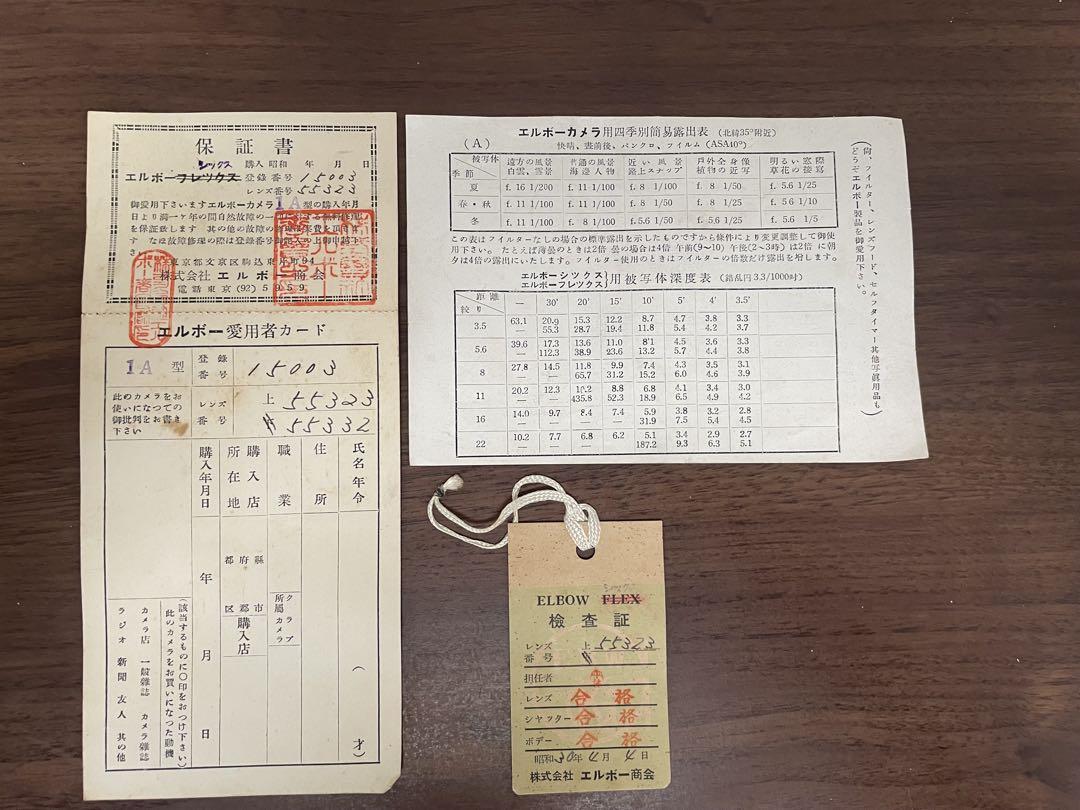 保証書
購入 昭和 年 月 日
シックス
エルボーフレックス 登録番号 15003
レンズ番号 55323
御愛用下さいますエルボーカメラ1A型の購入年月
日より満一ヶ年の間自然故障の
を保証致します 其の他の故障の
なほ故障修理の際は登録番号
東京都文京区駒込東片町94
株式会社 エルボー商会
電話東京(92)5959
エルボー愛用者カード
1A 型
登録番号 15003
此のカメラをお使いになつての御批判をお書き下さい
レンズ番号 上 55323
下 55332
氏名年令
( 才)
住所
職業
所属カメラクラブ
購入店所在地
都府縣
区郡市
購入店
購入年月日
年 月 日
(該当するものに〇印をおつけ下さい)
此のカメラをお買いになつた動機
カメラ店 一般雜誌 カメラ雜誌
ラジオ 新聞 友人 其の他
エルボーカメラ用四季別簡易露出表 (北緯35°附近)
(A) 快晴、晝前後、パンクロ、フイルム (ASA40°)
被写体 季節 遠方の風景 白雲、雪景 普通の風景 海邊人物 近い風景 路上スナップ 戸外全身像 植物の近写 明るい窓際 草花の接写
夏 f. 16 1/200 f. 11 1/100 f. 8 1/100 f. 8 1/50 f. 5.6 1/25
春・秋 f. 11 1/100 f. 11 1/100 f. 8 1/50 f. 8 1/25 f. 5.6 1/10
冬 f. 11 1/100 f. 8 1/100 f. 5.6 1/50 f. 5.6 1/25 f. 5.6 1/5
この表はフイルターなしの場合の標準露出を示したものですから條件により変更調整して御使
用下さい。たとえば薄曇のときは2倍 曇の場合は4倍 午前(9〜10) 午後(2〜3時)は2倍 に朝
夕は4倍の露出にいたします。フイルター使用のときはフイルターの倍数だけ露出を増します。
エルボーシツクス
エルボーフレツクス }用被写体深度表 (錯乱円3.3/1000吋)
距離 絞り — 30' 20' 15' 12' 10' 7' 5' 4' 3.5'
3.5 63.1 20.9 15.3 12.2 8.7 4.7 3.8 3.3
— 55.3 28.7 19.4 11.8 5.4 4.2 3.7
5.6 39.6 17.3 13.6 11.0 8'1 4.5 3.6 3.3
— 112.3 38.9 23.6 13.2 5.7 4.4 3.8
8 27.8 14.5 11.8 9.9 7.4 4.3 3.5 3.1
— 65.7 31.2 15.2 6.0 4.6 3.9
11 20.2 12.3 10.2 8.8 6.8 4.1 3.4 3.0
— — 435.8 52.3 18.9 6.5 4.9 4.2
16 14.0 9.7 8.4 7.4 5.9 3.8 3.2 2.8
— — — — 31.9 7.5 5.4 4.5
22 10.2 7.7 6.8 6.2 5.1 3.4 2.9 2.7
— — — — 187.2 9.3 6.3 5.1
(尙、フイルター、レンズフード、セルフタイマー其他写眞用品も
どうぞエルボー製品を御愛用下さい。)
シックス
ELBOW FLEX
檢査証
レンズ番号 上 55323
下
担任者
レンズ 合格
シャッター 合格
ボデー 合格
昭和30年4月4日
株式会社 エルボー商会